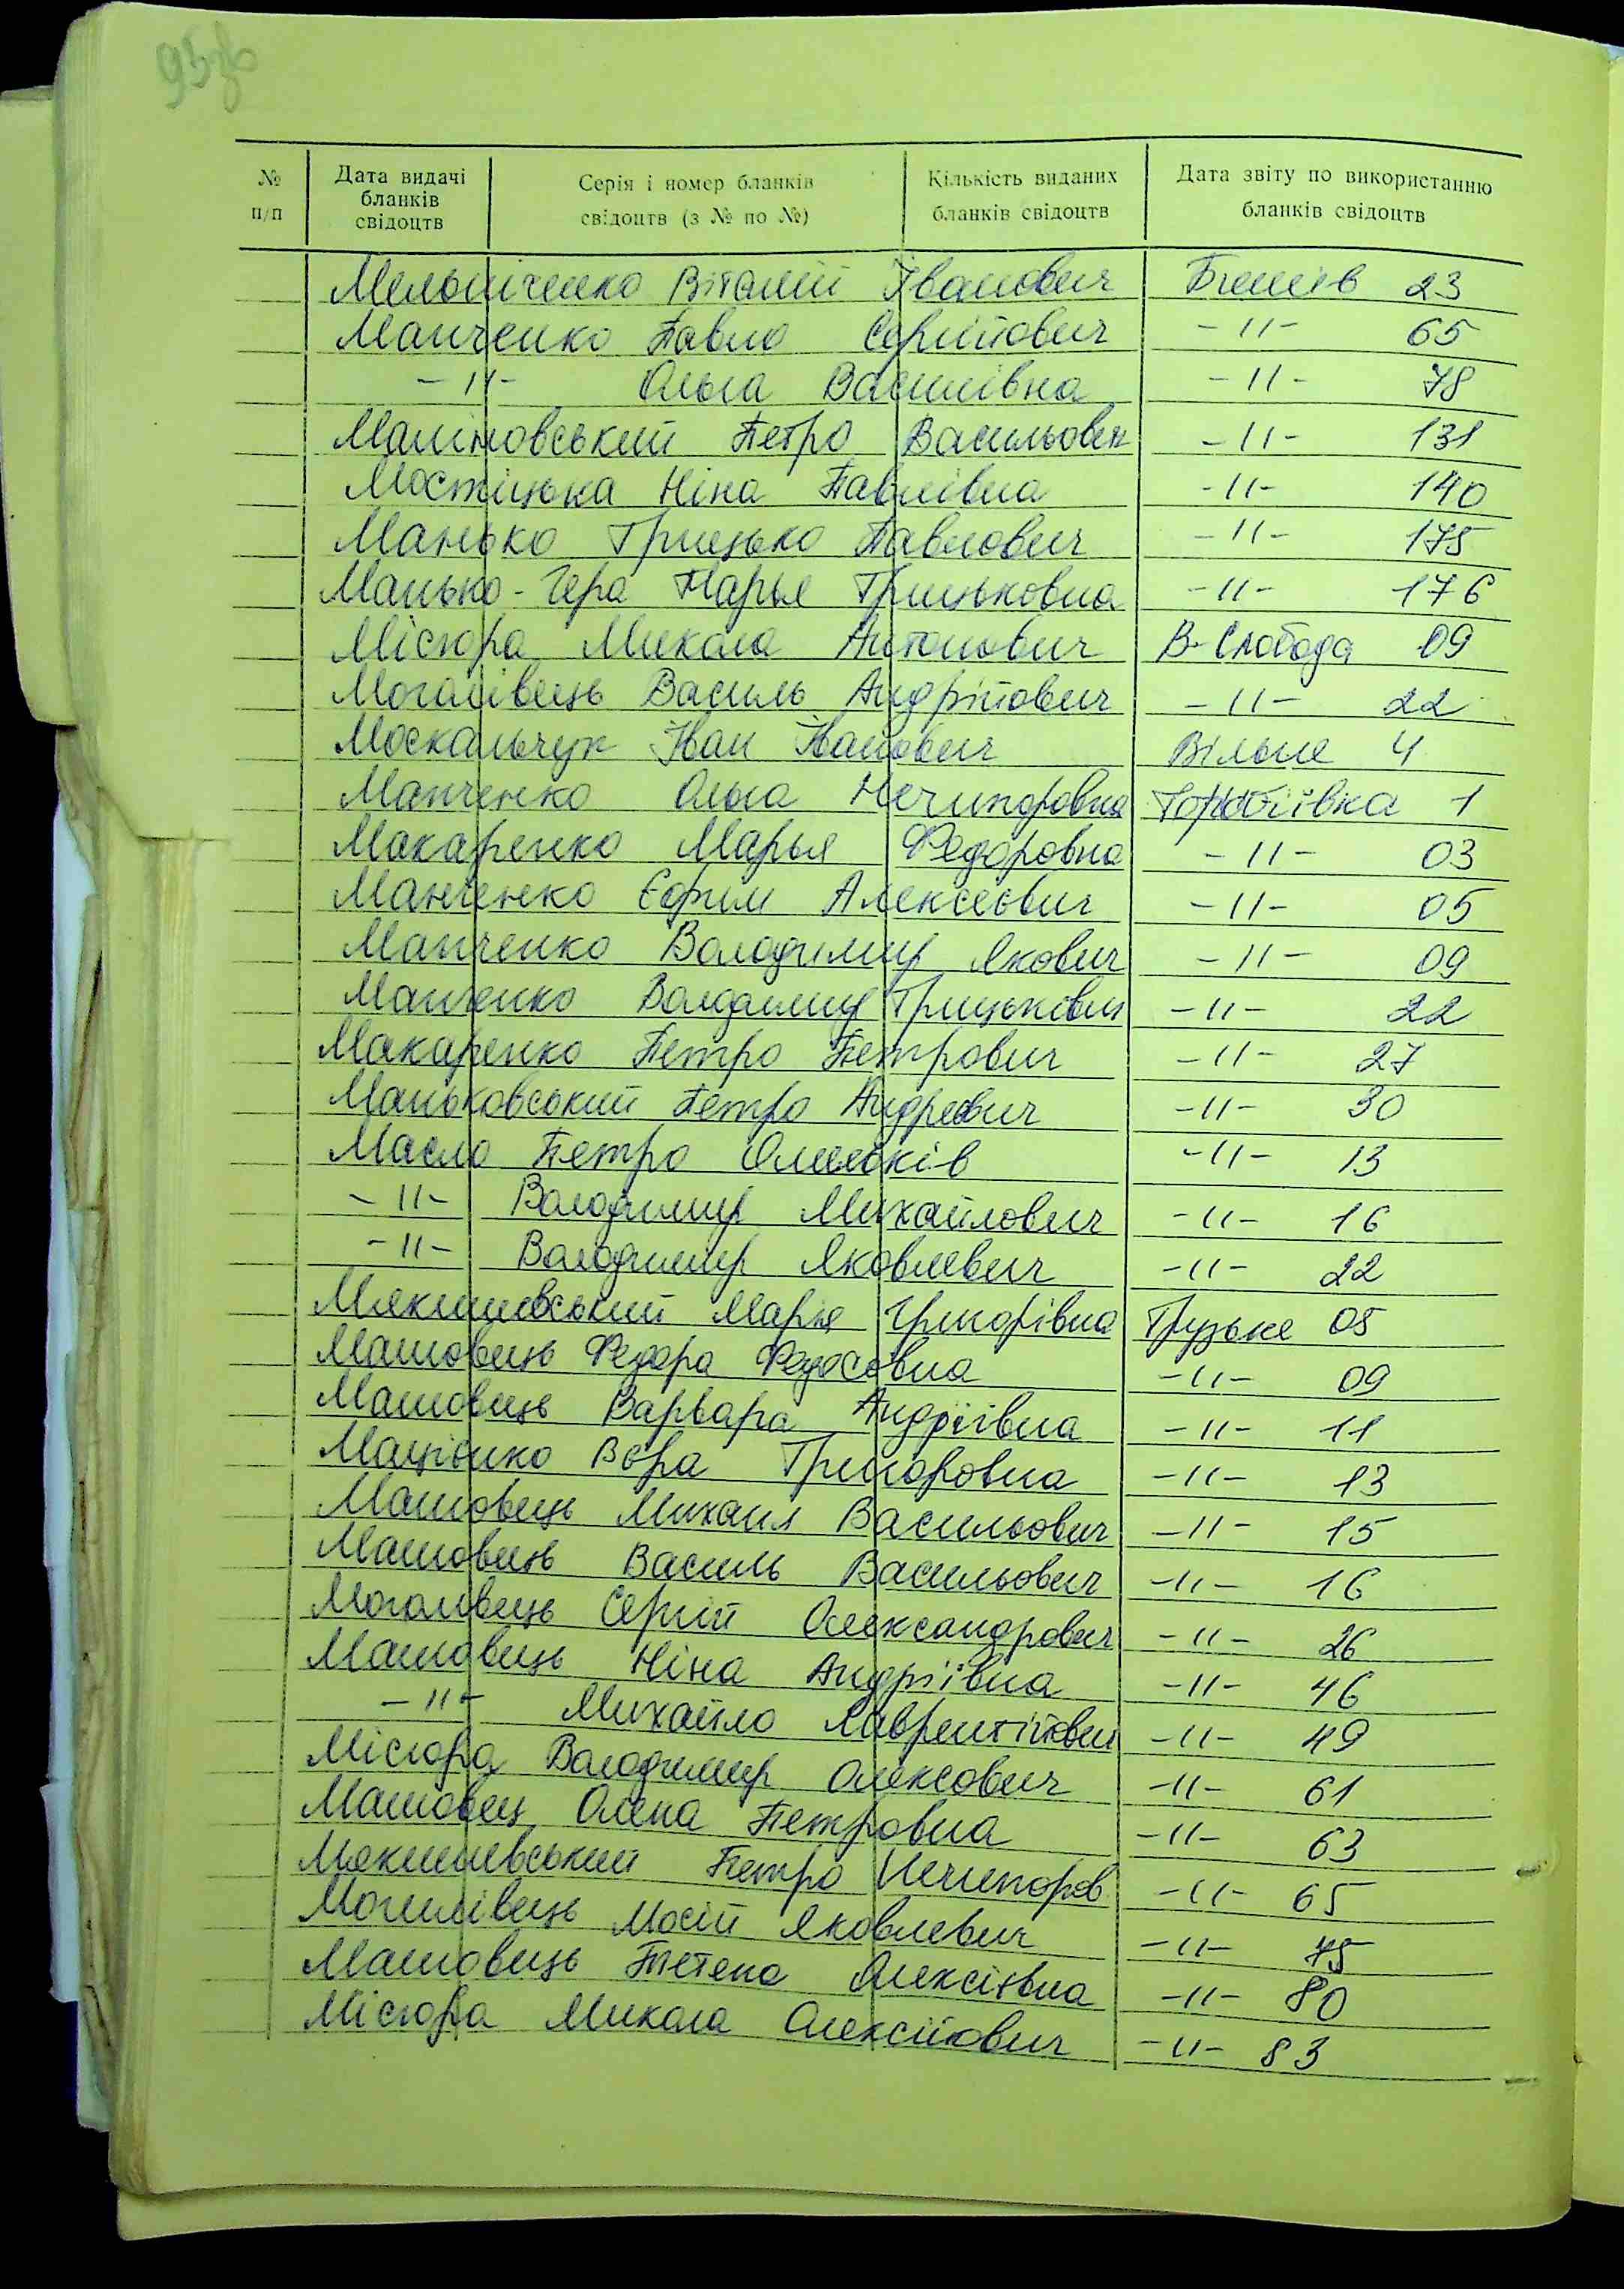 95зв
№ п/п Дата видачі бланків свідоцтв Серія і номер бланків свідоцтв (з № по №) Кількість виданих бланків свідоцтв Дата звіту по використанню бланків свідоцтв
Мельніченко Віталій Іванович Бишів 23
Манченко Павло Сергійович -〃- 65
-〃- Ольга Василівна -〃- 78
Маліновський Петро Васильович -〃- 131
Мостіцька Ніна Павлівна -〃- 140
Манько Грицько Павлович -〃- 175
Манько-Гера Марья Грицьковна -〃- 176
Місюра Микола Антонович В-Слобода 09
Могалівець Василь Андрійович -〃- 22
Москальчук Іван Іванович Вільне 4
Манченко Ольга Нечипоровна 1
Макаренко Марья Федоровна -〃- 03
Манченко Єфрим Алексєєвич -〃- 05
Манченко Володимир Якович -〃- 09
Манченко Володимир Грицькович -〃- 22
Макаренко Петро Петрович -〃- 27
Маньковський Петро Андреєвич -〃- 30
Масло Петро -〃- 13
-〃- Володимир Михайлович -〃- 16
-〃- Володимир Яковлевич -〃- 22
Мякишевський Марія Григорівна Грузьке 05
Машовець Федора Федосовна -〃- 09
Машовець Варвара Андріївна -〃- 11
Мацієнко Вєра Григоровна -〃- 13
Машовець Михаил Васильович -〃- 15
Машовець Василь Васильович -〃- 16
Могалівець Сергій Олександрович -〃- 26
Машовець Ніна Андріївна -〃- 46
-〃- Михайло Лаврентійович -〃- 49
Місюра Володимир Олексович -〃- 61
Машовец Олена Петровна -〃- 63
Мякишевський Петро Нечипоров -〃- 65
Могилівець Мосій Яковлевич -〃- 75
Машовець Тетена Олексієвна -〃- 80
Місюра Микола Олексійович -〃- 83